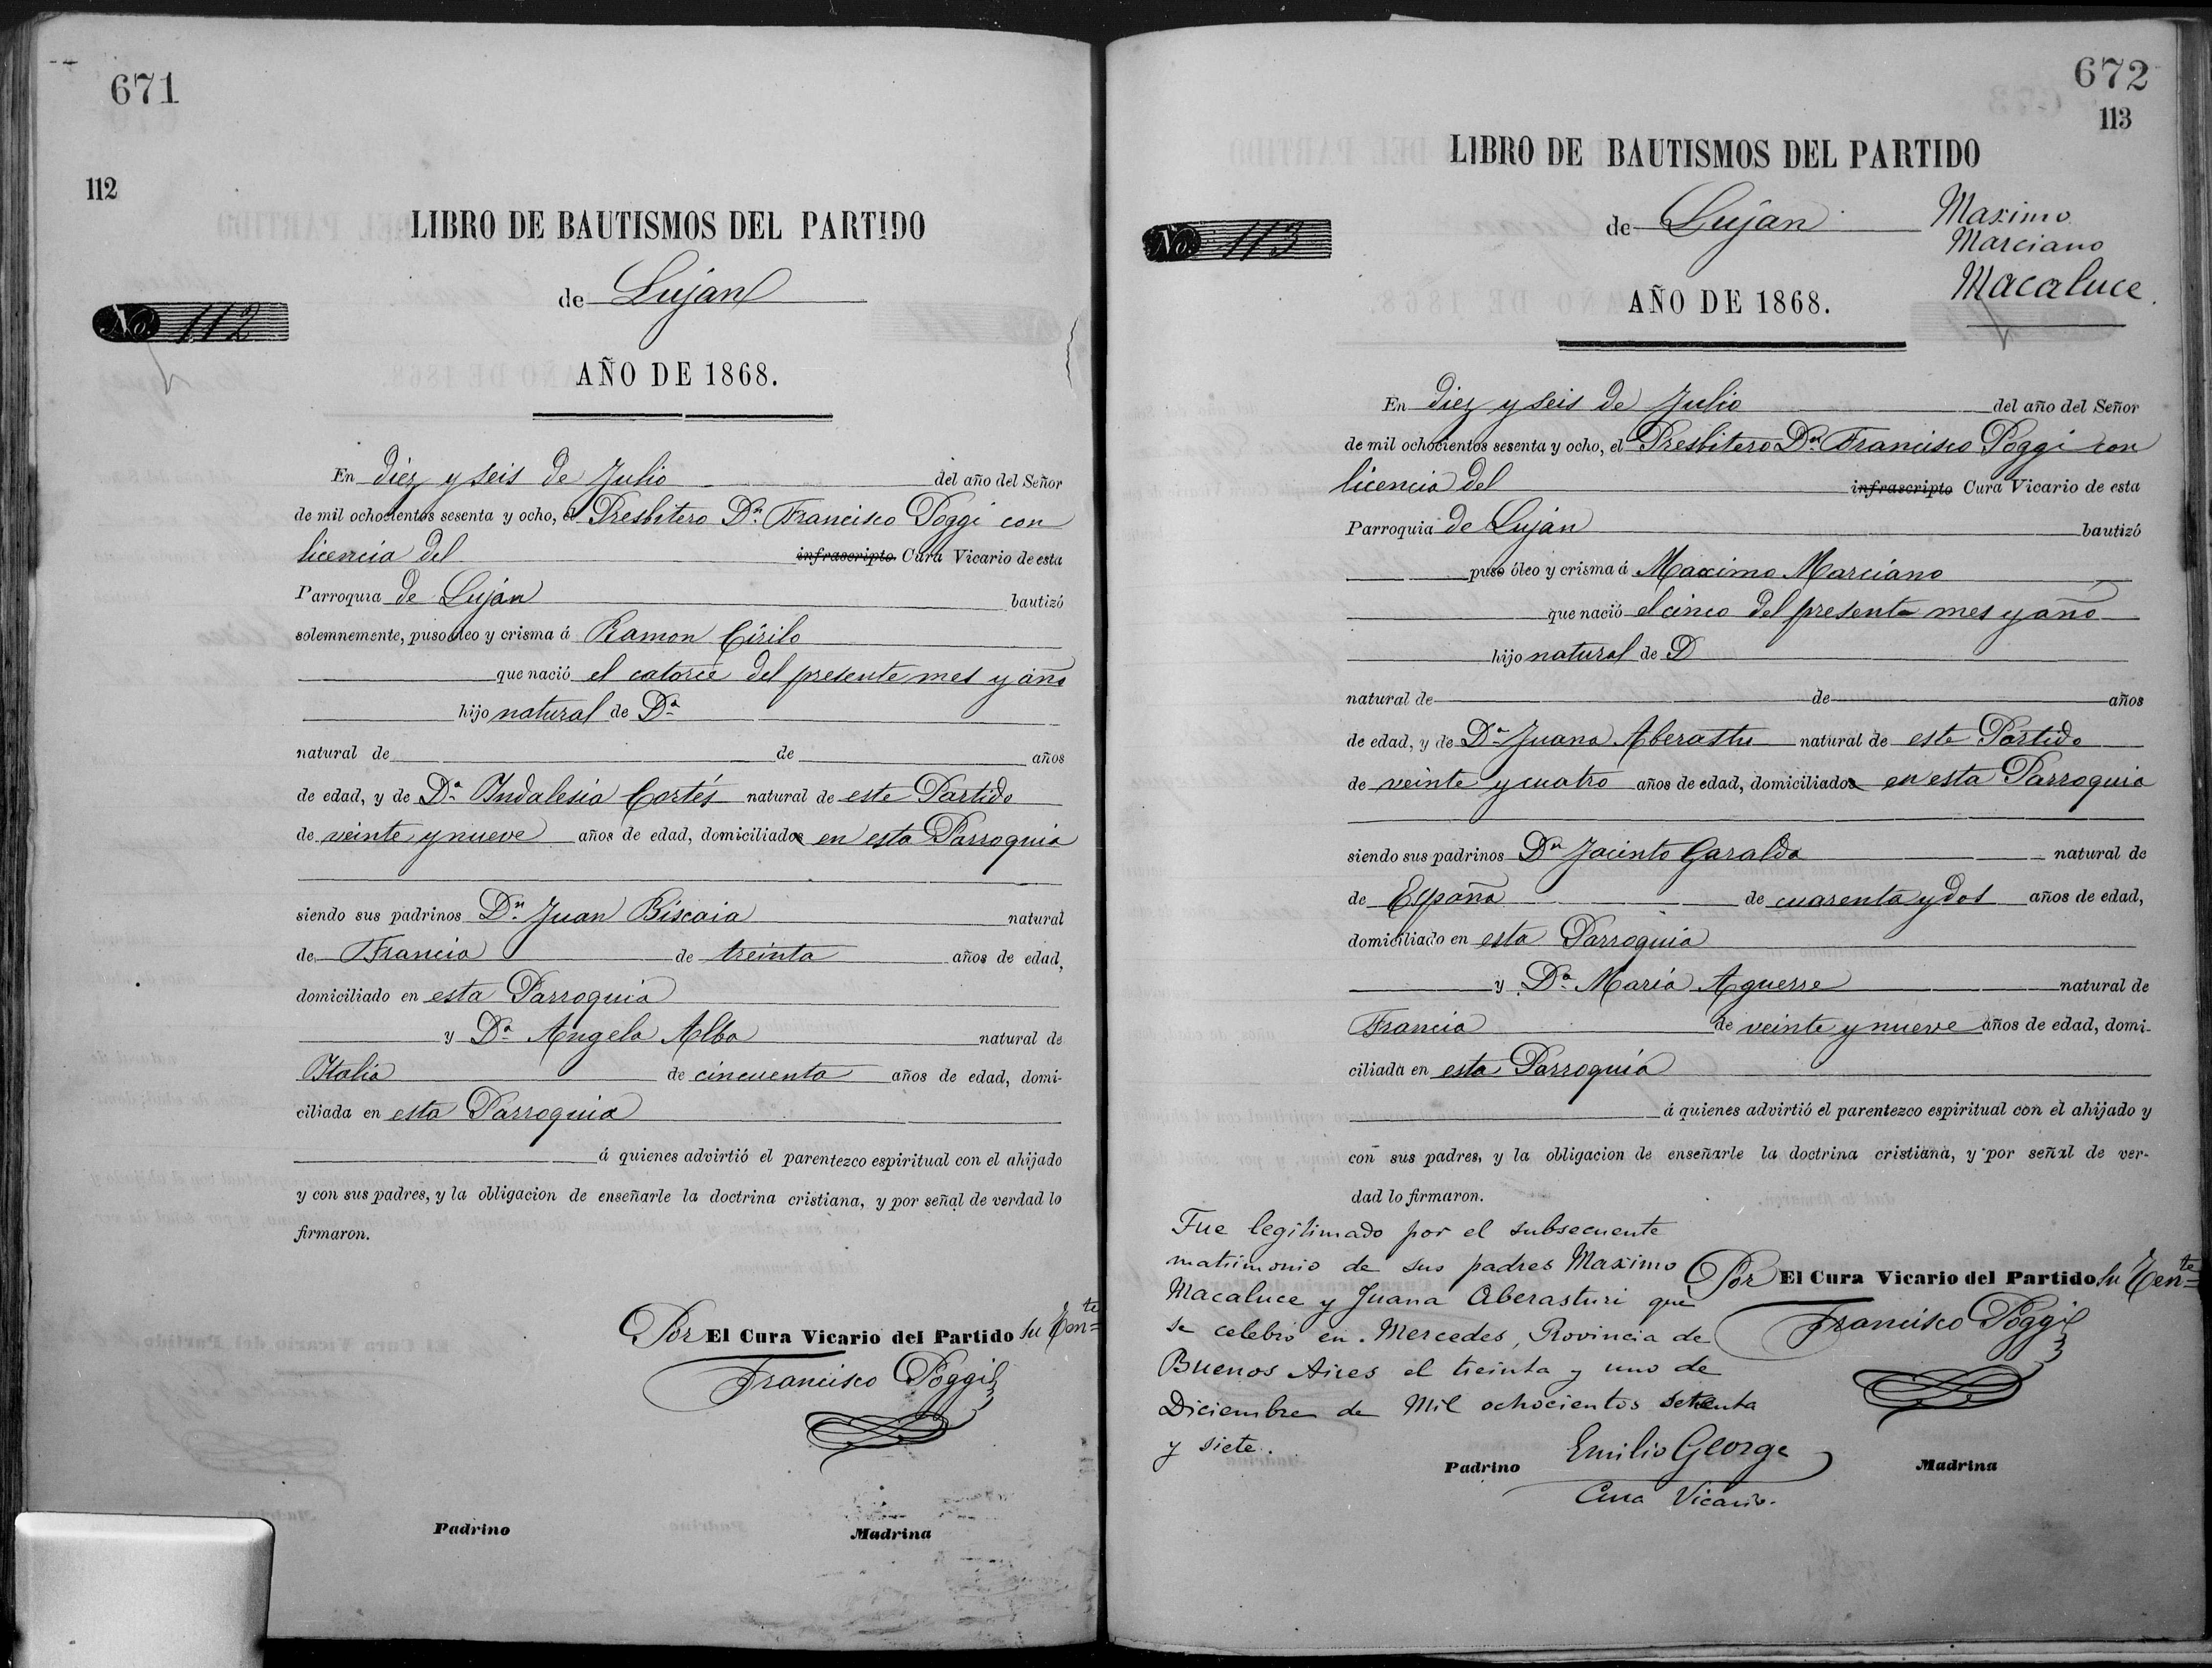 671
112
LIBRO DE BAUTISMOS DEL PARTIDO
de Lujan
No. 112
AÑO DE 1868.
En diez y seis de Julio del año del Señor
de mil ochocientos sesenta y ocho, el Presbitero Dn. Francisco Poggi con
licencia del infrascripto Cura Vicario de esta
Parroquia de Lujan bautizó
solemnemente, puso óleo y crisma á Ramon Cirilo
que nació el catorce del presente mes y año
hijo natural de Da.
natural de de años
de edad, y de Da. Indalesia Cortés natural de este Partido
de veinte y nueve años de edad, domiciliados en esta Parroquia
siendo sus padrinos Dn. Juan Biscaia natural
de Francia de treinta años de edad,
domiciliado en esta Parroquia
y Da. Angela Alba natural de
Italia de cincuenta años de edad, domi-
ciliada en esta Parroquia
á quienes advirtió el parentezco espiritual con el ahijado
y con sus padres, y la obligacion de enseñarle la doctrina cristiana, y por señal de verdad lo
firmaron.
Por El Cura Vicario del Partido su Tente
Francisco Poggi
Padrino Madrina
672
113
LIBRO DE BAUTISMOS DEL PARTIDO
de Lujan
No. 113
Maximo
Marciano
Macaluce
AÑO DE 1868.
En diez y seis de Julio del año del Señor
de mil ochocientos sesenta y ocho, el Presbitero Dn. Francisco Poggi con
licencia del infrascripto Cura Vicario de esta
Parroquia de Lujan bautizó
puso óleo y crisma á Maximo Marciano
que nació el cinco del presente mes y año
hijo natural de D
natural de de años
de edad, y de Da. Juana Aberastu natural de este Partido
de veinte y cuatro años de edad, domiciliados en esta Parroquia
siendo sus padrinos Dn Jacinto Garalda natural de
de España de cuarenta y dos años de edad,
domiciliado en esta Parroquia
y Da. María Aguerre natural de
Francia de veinte y nueve años de edad, domi-
ciliada en esta Parroquia
á quienes advirtió el parentezco espiritual con el ahijado y
con sus padres, y la obligacion de enseñarle la doctrina cristiana, y por señal de ver-
dad lo firmaron.
Fue legitimado por el subsecuente
matrimonio de sus padres Maximo
Macaluce y Juana Aberasturi que
se celebró en Mercedes, Provincia de
Buenos Aires el treinta y uno de
Diciembre de Mil ochocientos setenta
y siete.
Emilio George
Cura Vicario.
Por El Cura Vicario del Partido su Tente
Francisco Poggi
Padrino Madrina